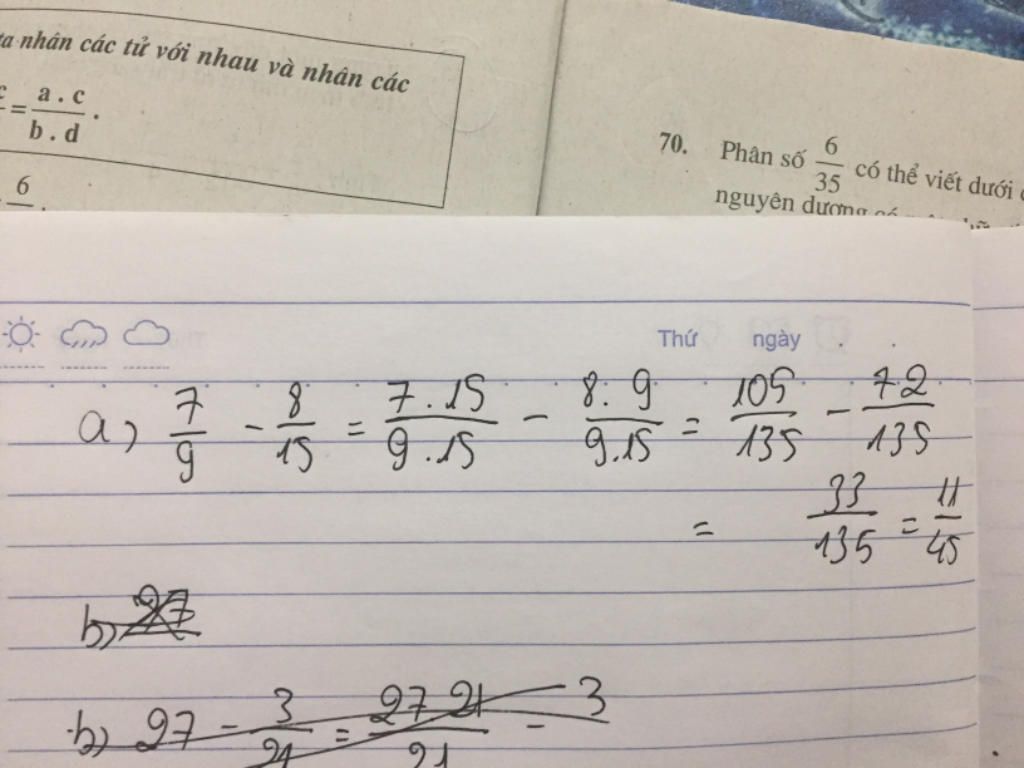 ta nhân các tử với nhau và nhân các
c = a . c / b . d .
6
70. Phân số 6/35 có thể viết dưới
nguyên dương có
Thứ ngày
a) 7/9 - 8/15 = 7.15/9.15 - 8.9/9.15 = 105/135 - 72/135
= 33/135 = 11/45
b) 27
b) 27 - 3/21 = 27 21/21 - 3